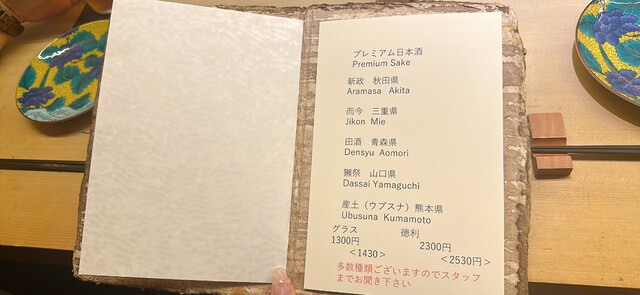 プレミアム日本酒
Premium Sake
新政　秋田県
Aramasa　Akita
而今　三重県
Jikon Mie
田酒　青森県
Densyu Aomori
獺祭　山口県
Dassai Yamaguchi
産土（ウブスナ）熊本県
Ubusuna　Kumamoto
グラス　　　　徳利
1300円　　　　2300円
＜1430＞　　　＜2530円＞
多数種類ございますのでスタッフ
までお聞き下さい